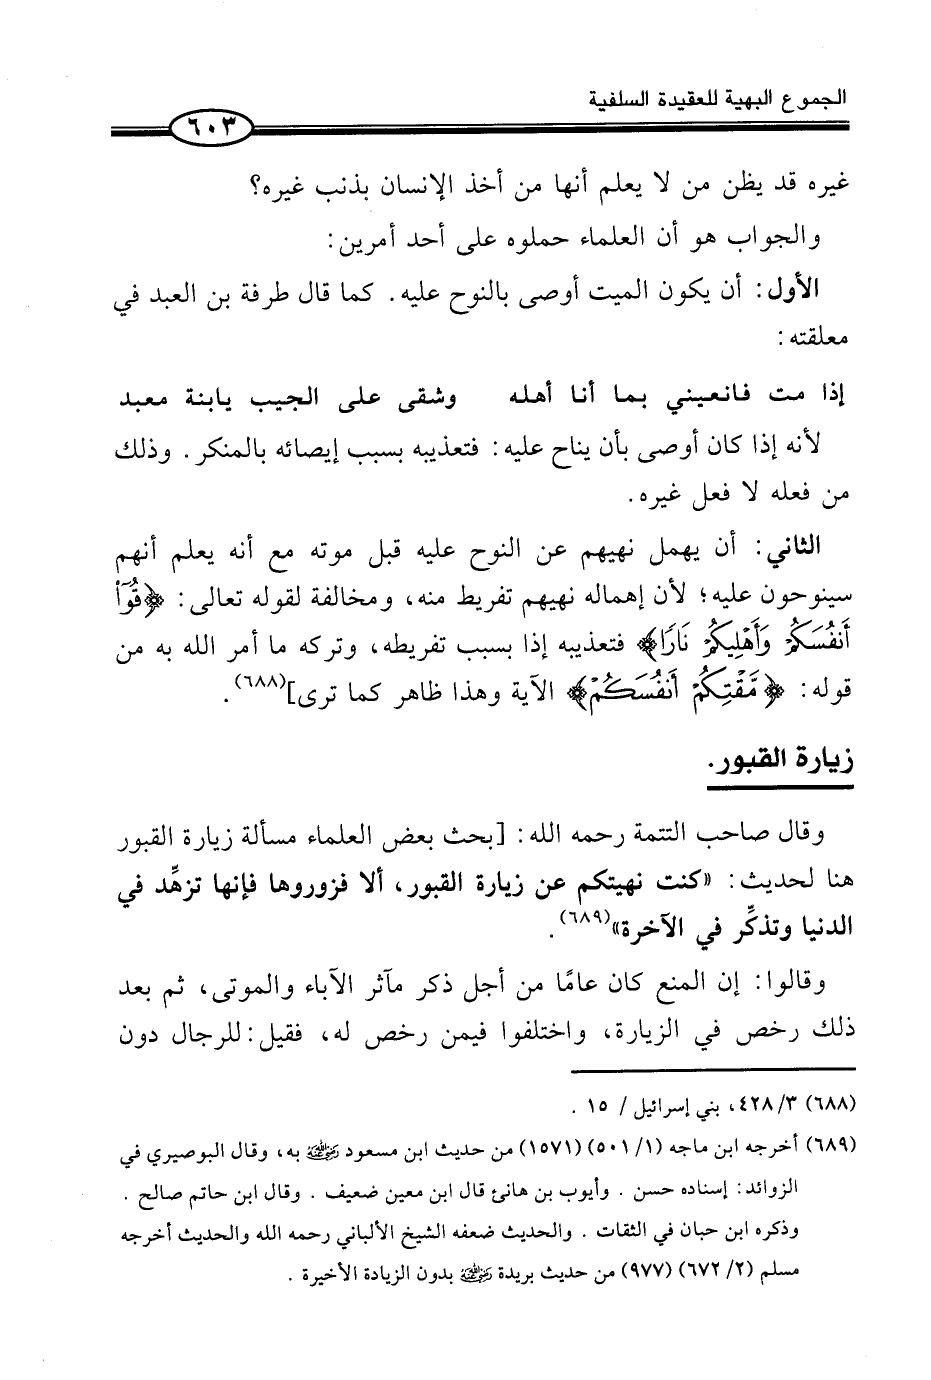 الجموع البهية للعقيدة السلفية
٦٠٣
غيره قد يظن من لا يعلم أنها من أخذ الإنسان بذنب غيره؟
والجواب هو أن العلماء حملوه على أحد أمرين:
الأول: أن يكون الميت أوصى بالنوح عليه. كما قال طرفة بن العبد في
معلقته:
إذا مت فانعيني بما أنا أهله وشقى على الجيب يابنة معبد
لأنه إذا كان أوصى بأن يناح عليه: فتعذيبه بسبب إيصائه بالمنكر. وذلك
من فعله لا فعل غيره.
الثاني: أن يهمل نهيهم عن النوح عليه قبل موته مع أنه يعلم أنهم
سينوحون عليه؛ لأن إهماله نهيهم تفريط منه، ومخالفة لقوله تعالى: ﴿قُوٓاْ
أَنفُسَكُمْ وَأَهْلِيكُمْ نَارًا﴾ فتعذيبه إذا بسبب تفريطه، وتركه ما أمر الله به من
قوله: ﴿ أَنفُسَكُمْ﴾ الآية وهذا ظاهر كما ترى](٦٨٨).
زيارة القبور.
وقال صاحب التتمة رحمه الله: [بحث بعض العلماء مسألة زيارة القبور
هنا لحديث: «كنت نهيتكم عن زيارة القبور، ألا فزوروها فإنها تزهِّد في
الدنيا وتذكِّر في الآخرة»(٦٨٩).
وقالوا: إن المنع كان عامًا من أجل ذكر مآثر الآباء والموتى، ثم بعد
ذلك رخص في الزيارة، واختلفوا فيمن رخص له، فقيل: للرجال دون
(٦٨٨) ٤٢٨/٣، بني إسرائيل / ١٥ .
(٦٨٩) أخرجه ابن ماجه (٥٠١/١) (١٥٧١) من حديث ابن مسعود رضي الله عنه به، وقال البوصيري في
الزوائد: إسناده حسن . وأيوب بن هانئ قال ابن معين ضعيف . وقال ابن حاتم صالح .
وذكره ابن حبان في الثقات . والحديث ضعفه الشيخ الألباني رحمه الله والحديث أخرجه
مسلم (٦٧٢/٢) (٩٧٧) من حديث بريدة رضي الله عنه بدون الزيادة الأخيرة .